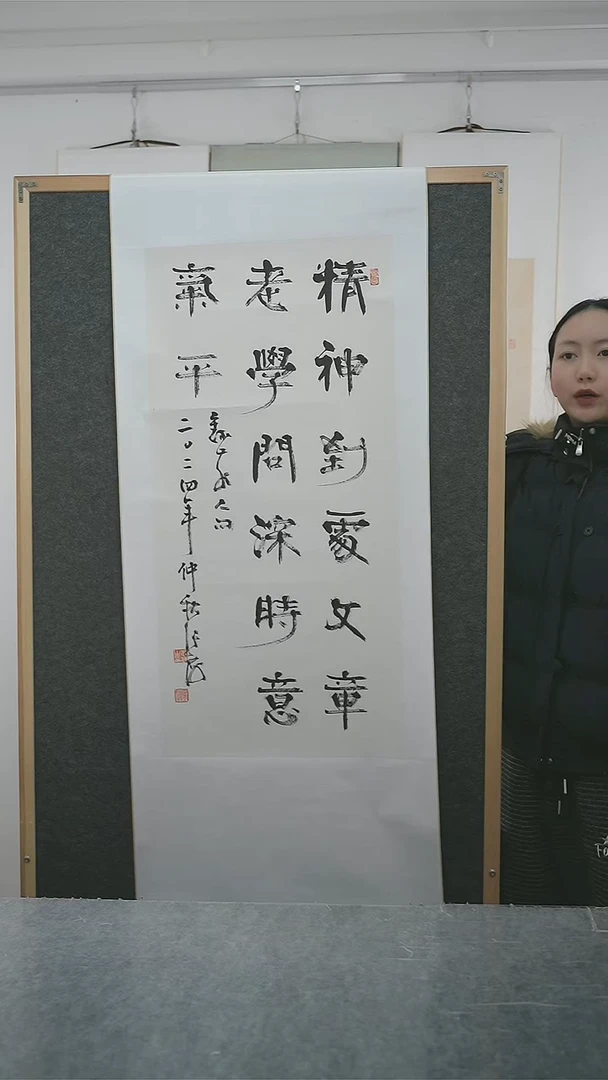 精神到處文章
老學問深時意
氣平
二〇二四年仲秋